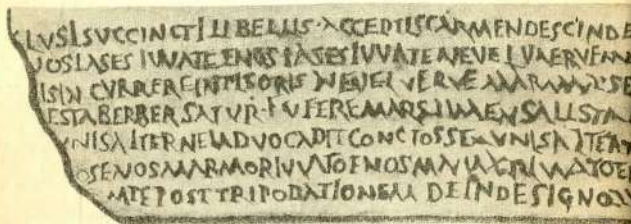 CLVSI SVCCINCTI LIBELLIS · ACCEPTIS CARMEN DESCINDE
NOS LASES IVVATE ENOS LASES IVVATE NEVE LVAERVE MA
IS IN CVRRERE IN PLEORIS NEVE LVERVE MARMAR SE
ESTA BERBER SATVR · FVFERE MARS LIMEN SALI STA
VNIS ALTERNEI ADVOCAPIT CONCTOS SEMVNIS ALTER
OSENOS MARMOR IVVATO ENOS MAMOR IVVATO E
MPE POST TRIPODATIONEM DEINDE SIGNO